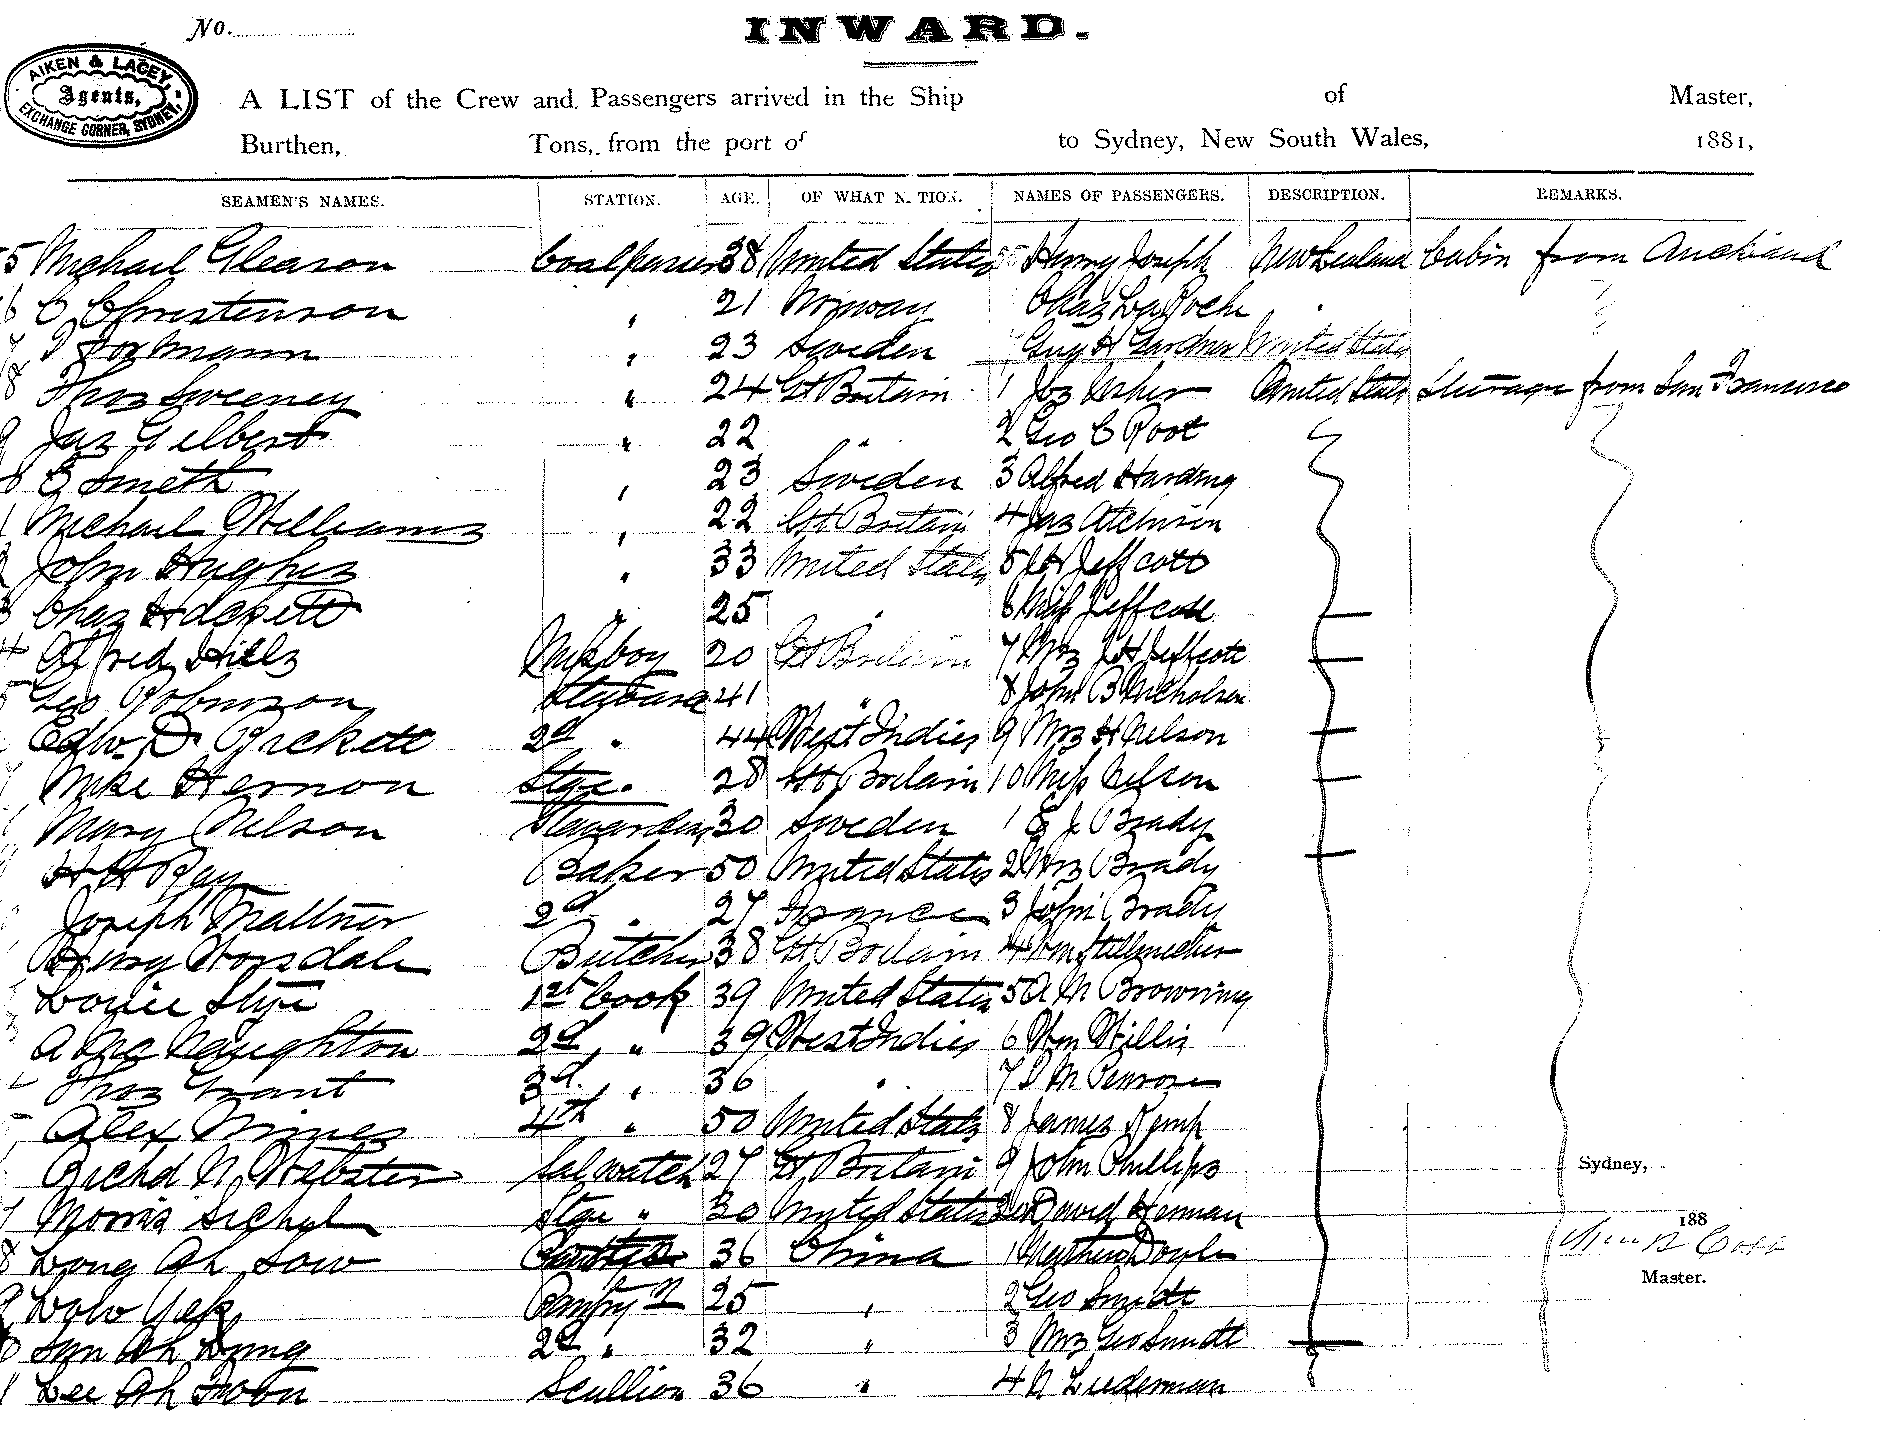 No.
INWARD.
AIKEN & LACEY,
Agents,
EXCHANGE CORNER, SYDNEY,
A LIST of the Crew and Passengers arrived in the Ship of Master,
Burthen, Tons, from the port of to Sydney, New South Wales, 1881,
SEAMEN'S NAMES. STATION. AGE. OF WHAT N TION. NAMES OF PASSENGERS. DESCRIPTION. REMARKS.
5 Michael Gleason Coalpasser 38 United States Henry Joseph New Zealand Cabin from Auckland
6 C Christenson " 21 Norway Chas La Roche "
7 " 23 Sweden Guy H Gardner United States
8 Thos Sweeney " 24 Gt Britain 1 Jos Usher United States Steerage from San Francisco
9 Jas Gilbert " 22 " 2 Geo C Root
E Smeth " 23 Sweden 3 Alfred Harding
1 Michael Williams " 22 Gt Britain 4 Jas Atchison
John Hughes " 33 United States 5 J H Jeffcott
3 Chas Hackett " 25 " 6 Miss Jeffcott
4 Alfred Hills Messboy 20 Gt Britain 7 Mrs J H Jeffcott
5 Geo Robinson Steward 41 " 8 John B Nicholson
Edw. D Rickett 2d " 44 West Indies 9 Mrs H Nelson
Mike Hernon Stge. 28 Gt Britain 10 Miss Nelson
Mary Nelson Stewardess 30 Sweden 1 E J Brady
H H Ray Baker 50 United States 2 Mrs Brady
Joseph Mattner 2d " 27 France 3 John Brady
Henry Worsdale Butcher 38 Gt Britain 4 Wm
Louie Stye 1st Cook 39 United States 5 A M Browning
A Mc Naughton 2d " 39 West Indies 6 Wm Willis
Thos Grant 3d " 36 " 7 D M Penrose
Alex Nimes 4th " 50 United States 8 James Kemp
Richd N Webster watch 27 Gt Britain 9 John Phillips
Sydney,
7 Morris Sichel Stge " 30 United States 20 David Herman
188
8 Long Ah Sow 36 China 1 Doyle
Master.
9 Low Yek Pantry 25 " 2 Geo Smidt
Sun Ah Lung 2d " 32 " 3 Mrs Geo Smidt
1 Lee Ah Foon Scullion 36 " 4 N Liederman